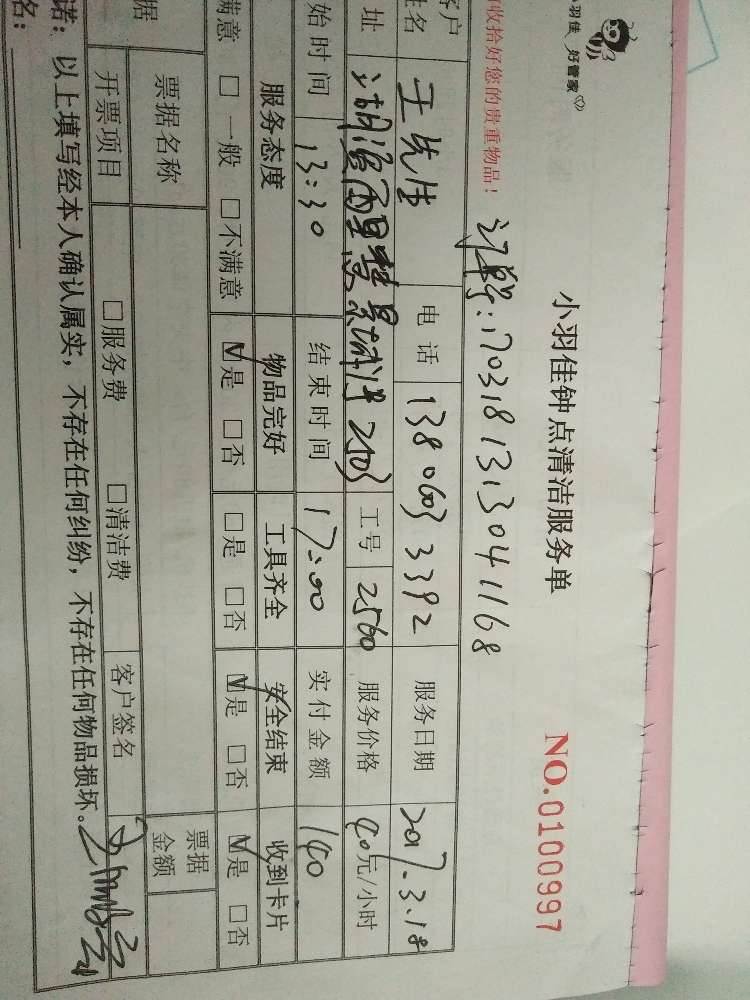 小羽佳 好管家
小羽佳钟点清洁服务单
NO.0100997
收拾好您的贵重物品！
订单号：1703181313041168
客户姓名 王先生 电话 13806033392 服务日期 2017.3.18
址 2503 工号 2560 服务价格 40元/小时
始时间 13:30 结束时间 17:00 实付金额 140
服务态度 物品完好 工具齐全 安全结束 收到卡片
满意 □一般 □不满意 ☑是 □否 □是 □否 ☑是 □否 ☑是 □否
据 票据名称 票据金额
开票项目 □服务费 □清洁费 客户签名
诺：以上填写经本人确认属实，不存在任何纠纷，不存在任何物品损坏。
名：